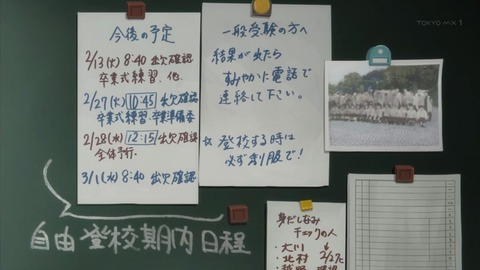 TOKYO MX 1
今後の予定
2/13(火) 8:40 出欠確認
卒業式練習、他
2/27(火) 10:45 出欠確認
卒業式練習・卒業準備委
2/28(水) 12:15 出欠確認
全体予行
3/1(木) 8:40 出欠確認
一般受験の方へ
結果が出たら
すみやかに電話で
連絡して下さい。
☆ 登校する時は
必ず制服で!
自由登校期内日程
身だしなみ
チェックの人
・大川
・北村 2/27に
・越野 確認